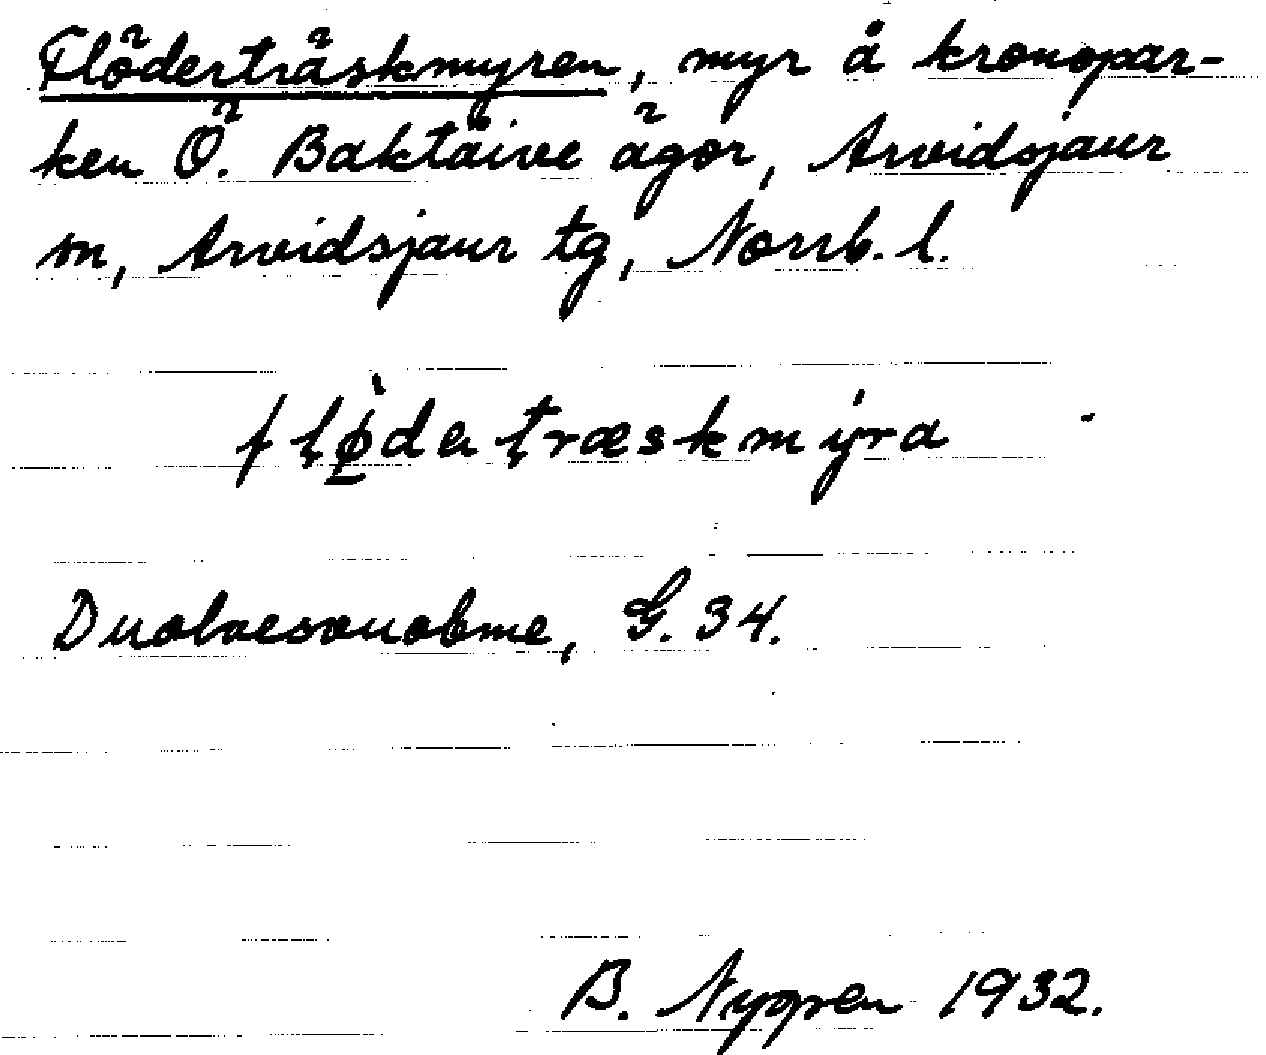 Flöderträskmyren, myr å kronopar-
ken Ö. Baktäive ägor, Arvidsjaur
sn, Arvidsjaur tg, Norrb. l.
flø̀da træskmýra
Duolvesvuobme, G. 34.
B. Nygren 1932.